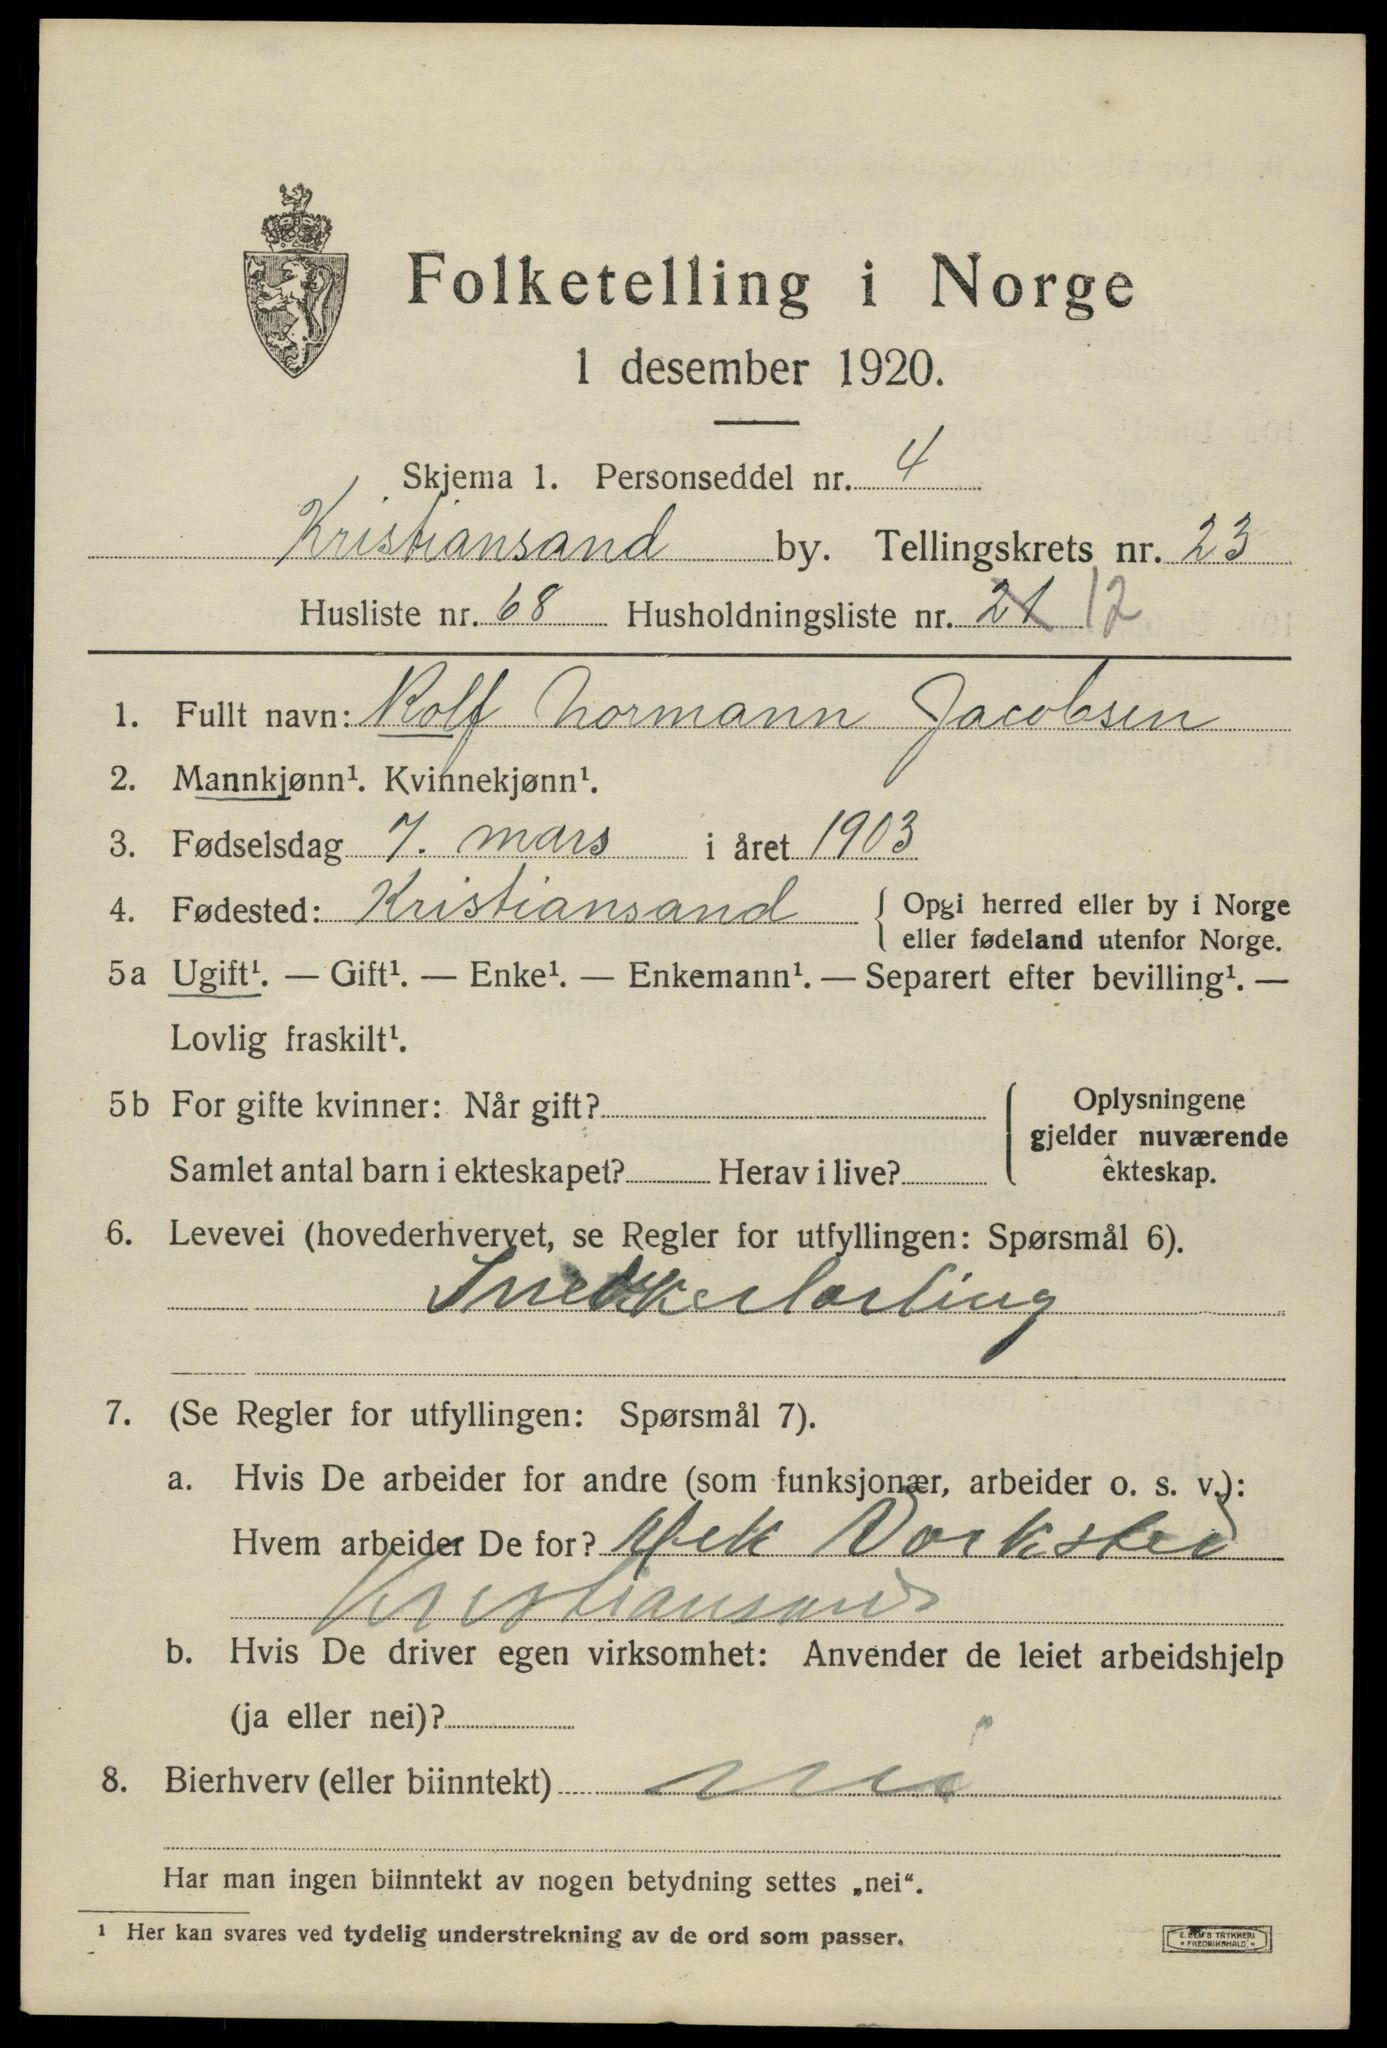 Folketelling i Norge
1 desember 1920.
Skjema 1. Personseddel nr. 4
Kristiansand by. Tellingskrets nr. 23
Husliste nr. 68 Husholdningsliste nr. 21 12
1. Fullt navn: Rolf Normann Jacobsen
2. Mannkjønn¹. Kvinnekjønn¹.
3. Fødselsdag 7. mars i året 1903
4. Fødested: Kristiansand { Opgi herred eller by i Norge
eller fødeland utenfor Norge.
5a Ugift¹. — Gift¹. — Enke¹. — Enkemann¹. — Separert efter bevilling¹. —
Lovlig fraskilt¹.
5b For gifte kvinner: Når gift? { Oplysningene
gjelder nuværende
Samlet antal barn i ekteskapet? Herav i live? ekteskap.
6. Levevei (hovederhvervet, se Regler for utfyllingen: Spørsmål 6).
Snekkerlærling
7. (Se Regler for utfyllingen: Spørsmål 7).
a. Hvis De arbeider for andre (som funksjonær, arbeider o. s. v.):
Hvem arbeider De for? Mek Værksted
Kristiansand
b. Hvis De driver egen virksomhet: Anvender de leiet arbeidshjelp
(ja eller nei)?
8. Bierhverv (eller biinntekt) nei
Har man ingen biinntekt av nogen betydning settes „nei“.
¹ Her kan svares ved tydelig understrekning av de ord som passer.
E. SEM'S TRYKKERI
* FREDRIKSHALD *